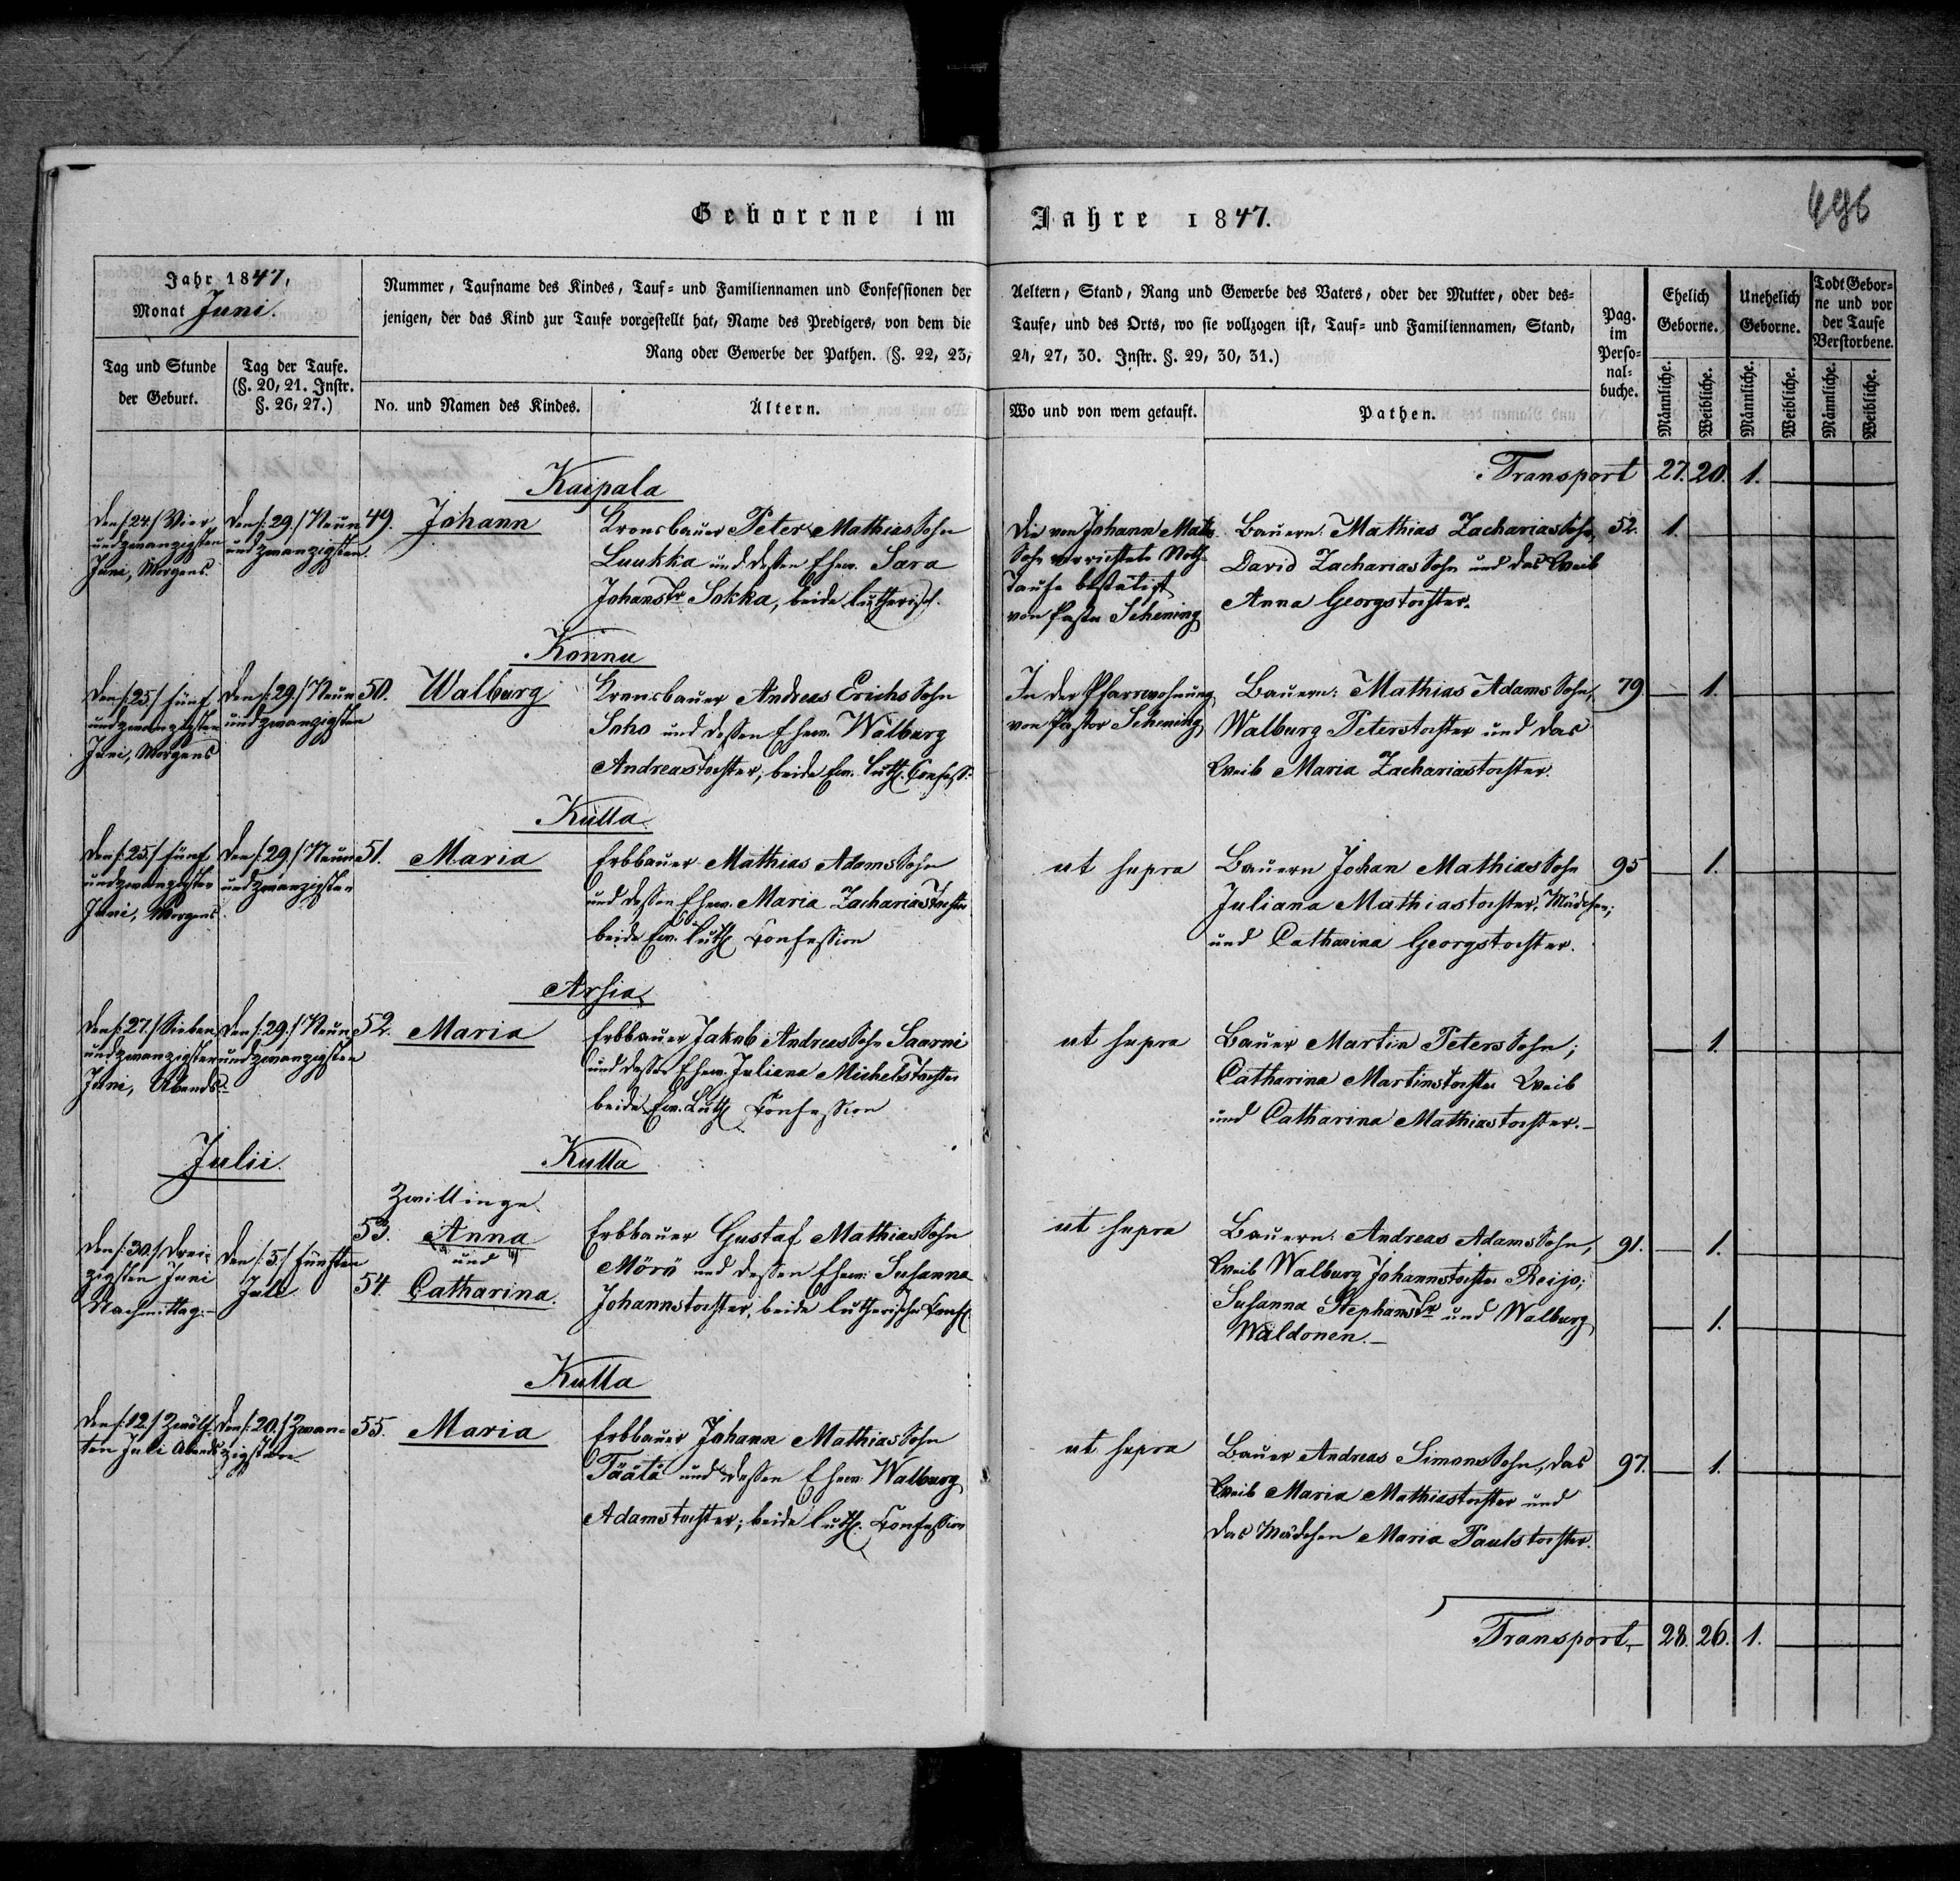 Geborene im Jahre 1847.
496
Jahr 1847,
Monat Juni.
Tag und Stunde
der Geburt.
Tag der Taufe.
(§. 20, 21. Instr.
§. 26, 27.)
Nummer, Taufname des Kindes, Tauf- und Familiennamen und Confessionen der
jenigen, der das Kind zur Taufe vorgestellt hat, Name des Predigers, von dem die
Rang oder Gewerbe der Pathen. (§. 22, 23,
No. und Namen des Kindes.
Ältern.
Aeltern, Stand, Rang und Gewerbe des Vaters, oder der Mutter, oder des-
Taufe, und des Orts, wo sie vollzogen ist, Tauf- und Familiennamen, Stand,
24, 27, 30. Instr. §. 29, 30, 31.)
Wo und von wem getauft.
Pathen.
Pag.
im
Perso-
nal-
buche.
Ehelich
Geborne.
Unehelich
Geborne.
Todt Gebor-
ne und vor
der Taufe
Verstorbene.
Männliche.
Weibliche.
Männliche.
Weibliche.
Männliche.
Weibliche.
Transport 27. 20. 1.
Kaipala
den /:24./ Vier
undzwanzigsten
Juni, Morgens.
den /:29./ Neun
undzwanzigsten.
49. Johann
Kronsbauer Peter Mathias Sohn
Luukka und dessen Ehew. Sara
Johanstr Sokka, beide lutherisch.
Die von Johann Maths
Sohn verrichtete Noth
Taufe bestätigt
von Pastor Schening
Bauern: Mathias Zacharias Sohn,
David Zacharias Sohn und das Weib
Anna Georgstochter.
52. 1.
Konnu
den /:25./ fünf
undzwanzigsten
Juni, Morgens
den /:29./ Neun
undzwanzigsten
50. Walburg
Kronsbauer Andreas Erichs Sohn
Soho und dessen Ehew. Walburg
Andreastochter; beide Ew. Luth. Confess:
In der Pfarrwohnung
von Pastor Schening
Bauern: Mathias Adams Sohn,
Walburg Peterstochter und das
Weib Maria Zachariastochter.
79. 1.
Kulla
den /:25./ fünf
undzwanzigsten
Juni, Morgens.
den /:29./ Neun
undzwanzigsten
51. Maria
Erbbauer Mathias Adams Sohn
und dessen Ehew. Maria Zachariastochter
beide Ew. Luth Confession
ut supra
Bauern Johan Mathias Sohn
Juliana Mathiastochter, Mädchen;
und Catharina Georgstochter.
95 1.
Arsia
den /:27./ Sieben
undzwanzigsten
Juni, Abends
den /:29./ Neun
undzwanzigsten
52. Maria
Erbbauer Jakob Andreas Sohn Saarni
und dessen Ehew. Juliana Michelstochter
beide Ew. Luth Confession
ut supra
Bauer Martin Peters Sohn;
Catharina Martinstochter Weib
und Catharina Mathiastochter.
1.
Julii.
Kulla
Zwillinge.
den /:30./ Drei-
zigsten Juni
Nachmittag.
den /:5./ fünften
Juli
53. Anna
und
54. Catharina.
Erbbauer Gustaf Mathias Sohn
Mörö und dessen Ehew: Susanna
Johannstochter, beide lutherischer Conf.
ut supra
Bauern: Andreas Adams Sohn,
Weib Walburg Johannstochter Reijo;
Susanna Stephanstr und Walburg
Waldonen.
91. 1.
1.
Kulla
den /:12./ Zwölf-
ten Juli Abends
den /:20./ Zwan-
zigsten
55. Maria
Erbbauer Johann Mathias Sohn
Täätä und dessen Ehew: Walburg
Adamstochter; beide Luth. Confession
ut supra
Bauer Andreas Simons Sohn, das
Weib Maria Mathiastochter und
das Mädchen Maria Paulstochter.
97. 1.
Transport, 28. 26. 1.